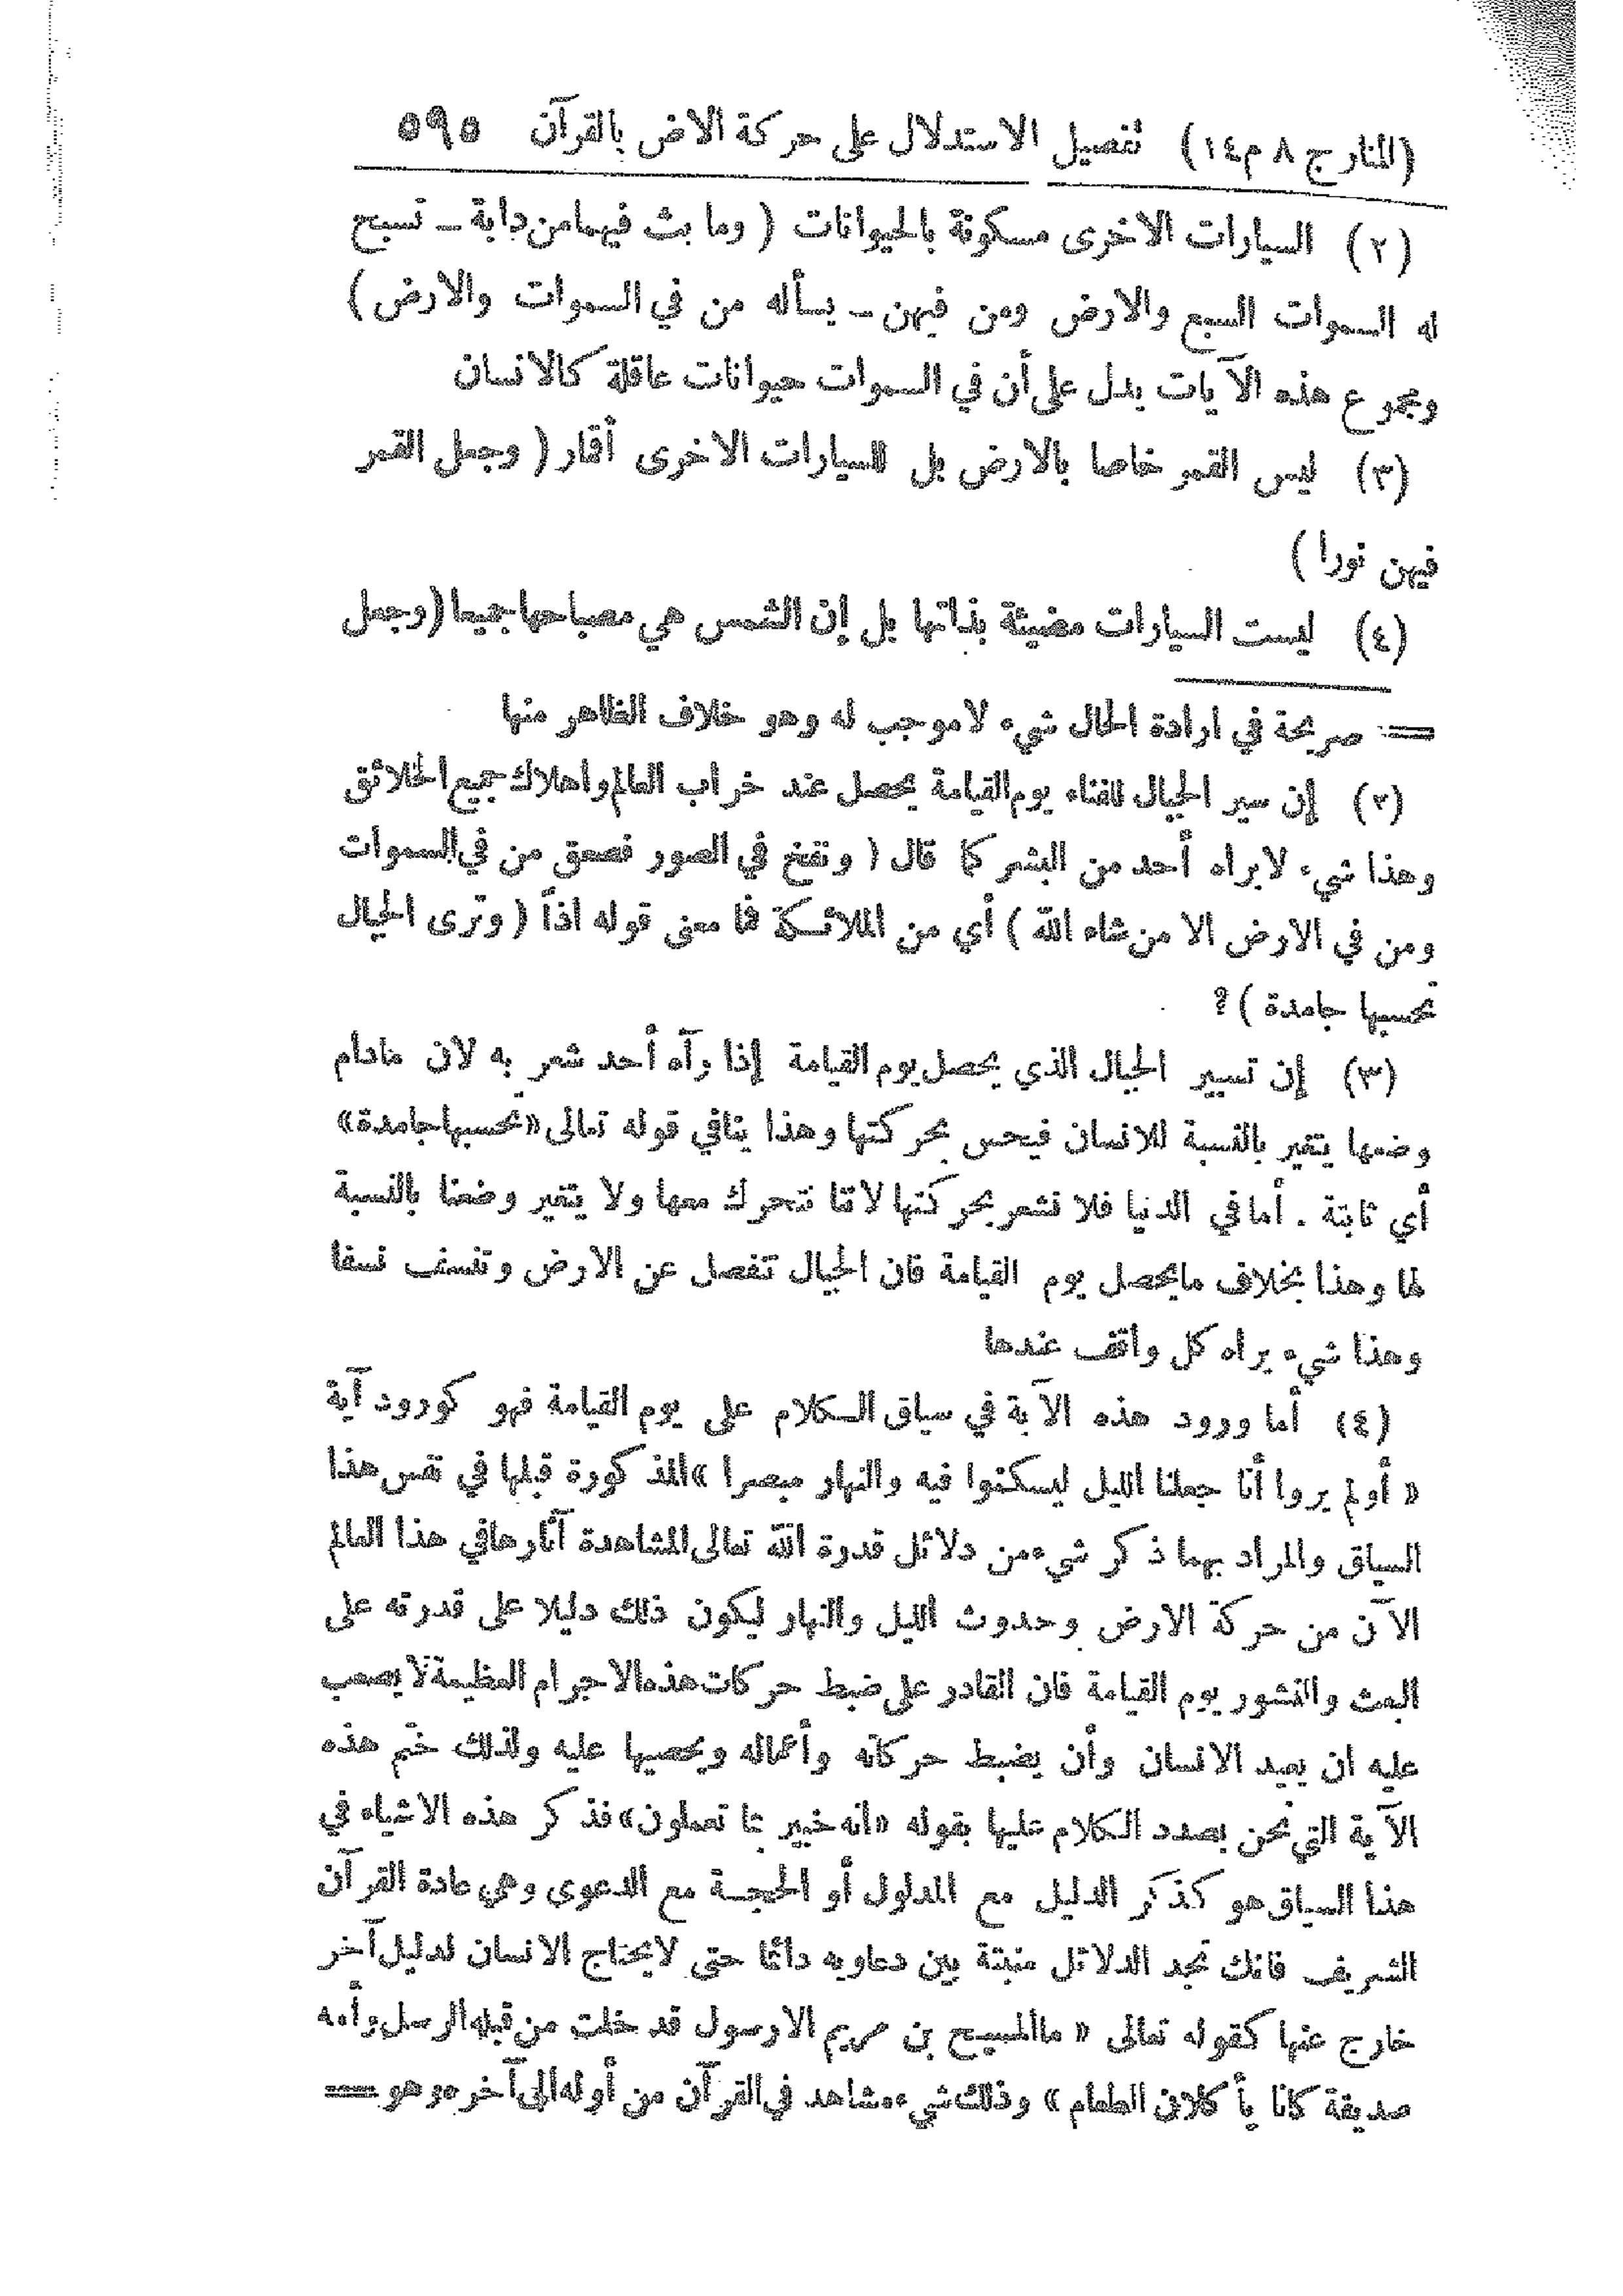 (المنار ج ٨ م ١٤) تفصيل الاستدلال على حركة الاض بالقرآن ٥٩٥
(٢) السيارات الاخرى مسكونة بالحيوانات ( وما بث فيهما من دابة ــ تسبح
له السموات السبع والارض ومن فيهن ــ يسأله من في السموات والارض )
ومجموع هذه الآيات يدل على أن في السموات حيوانات عاقلة كالانسان
(٣) ليس القمر خاصا بالارض بل للسيارات الاخرى أقمار ( وجعل القمر
فيهن نورا )
(٤) ليست السيارات مضيئة بذاتها بل إن الشمس هي مصباحها جميعا (وجعل
= صريحة في ارادة الحال شيء لا موجب له وهو خلاف الظاهر منها
(٢) إن سير الجبال للفناء يوم القيامة يحصل عند خراب العالم واهلاك جميع الخلائق
وهذا شيء لا يراه أحد من البشر كما قال ( ونفخ في الصور فصعق من في السموات
ومن في الارض الا من شاء الله ) أي من الملائكة فما معنى قوله اذاً ( وترى الجبال
تحسبها جامدة ) ؟
(٣) إن تسيير الجبال الذي يحصل يوم القيامة إذا رآه أحد شعر به لان مادام
وضعها يتغير بالنسبة للانسان فيحس بحركتها وهذا ينافي قوله تعالى «تحسبها جامدة»
أي ثابتة . أما في الدنيا فلا نشعر بحركتها لاننا نتحرك معها ولا يتغير وضعنا بالنسبة
لها وهذا بخلاف ما يحصل يوم القيامة فان الجبال تنفصل عن الارض وتنسف نسفا
وهذا شيء يراه كل واقف عندها
(٤) أما ورود هذه الآية في سياق الكلام على يوم القيامة فهو كورود آية
« أولم يروا أنا جعلنا الليل ليسكنوا فيه والنهار مبصرا » المذكورة قبلها في نفس هذا
السياق والمراد بهما ذكر شيء من دلائل قدرة الله تعالى المشاهدة آثارها في هذا العالم
الآن من حركة الارض وحدوث الليل والنهار ليكون ذلك دليلا على قدرته على
البعث والنشور يوم القيامة فان القادر على ضبط حركات هذه الاجرام العظيمة لا يصعب
عليه ان يعيد الانسان وأن يضبط حركاته وأعماله ويحصيها عليه ولذلك ختم هذه
الآية التي نحن بصدد الكلام عليها بقوله «انه خبير بما تعملون» فذكر هذه الاشياء في
هذا السياق هو كذكر الدليل مع المدلول أو الحجة مع الدعوى وهي عادة القرآن
الشريف فانك تجد الدلائل منبثة بين دعاويه دائما حتى لا يحتاج الانسان لدليل آخر
خارج عنها كقوله تعالى « ما المسيح بن مريم الا رسول قد خلت من قبله الرسل وأمه
صديقة كانا يأكلان الطعام » وذلك شيء مشاهد في القرآن من أوله الى آخره وهو =